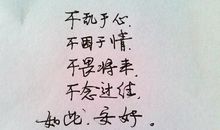 不乱于心
不困于情
不畏将来
不念过往
如此,安好。